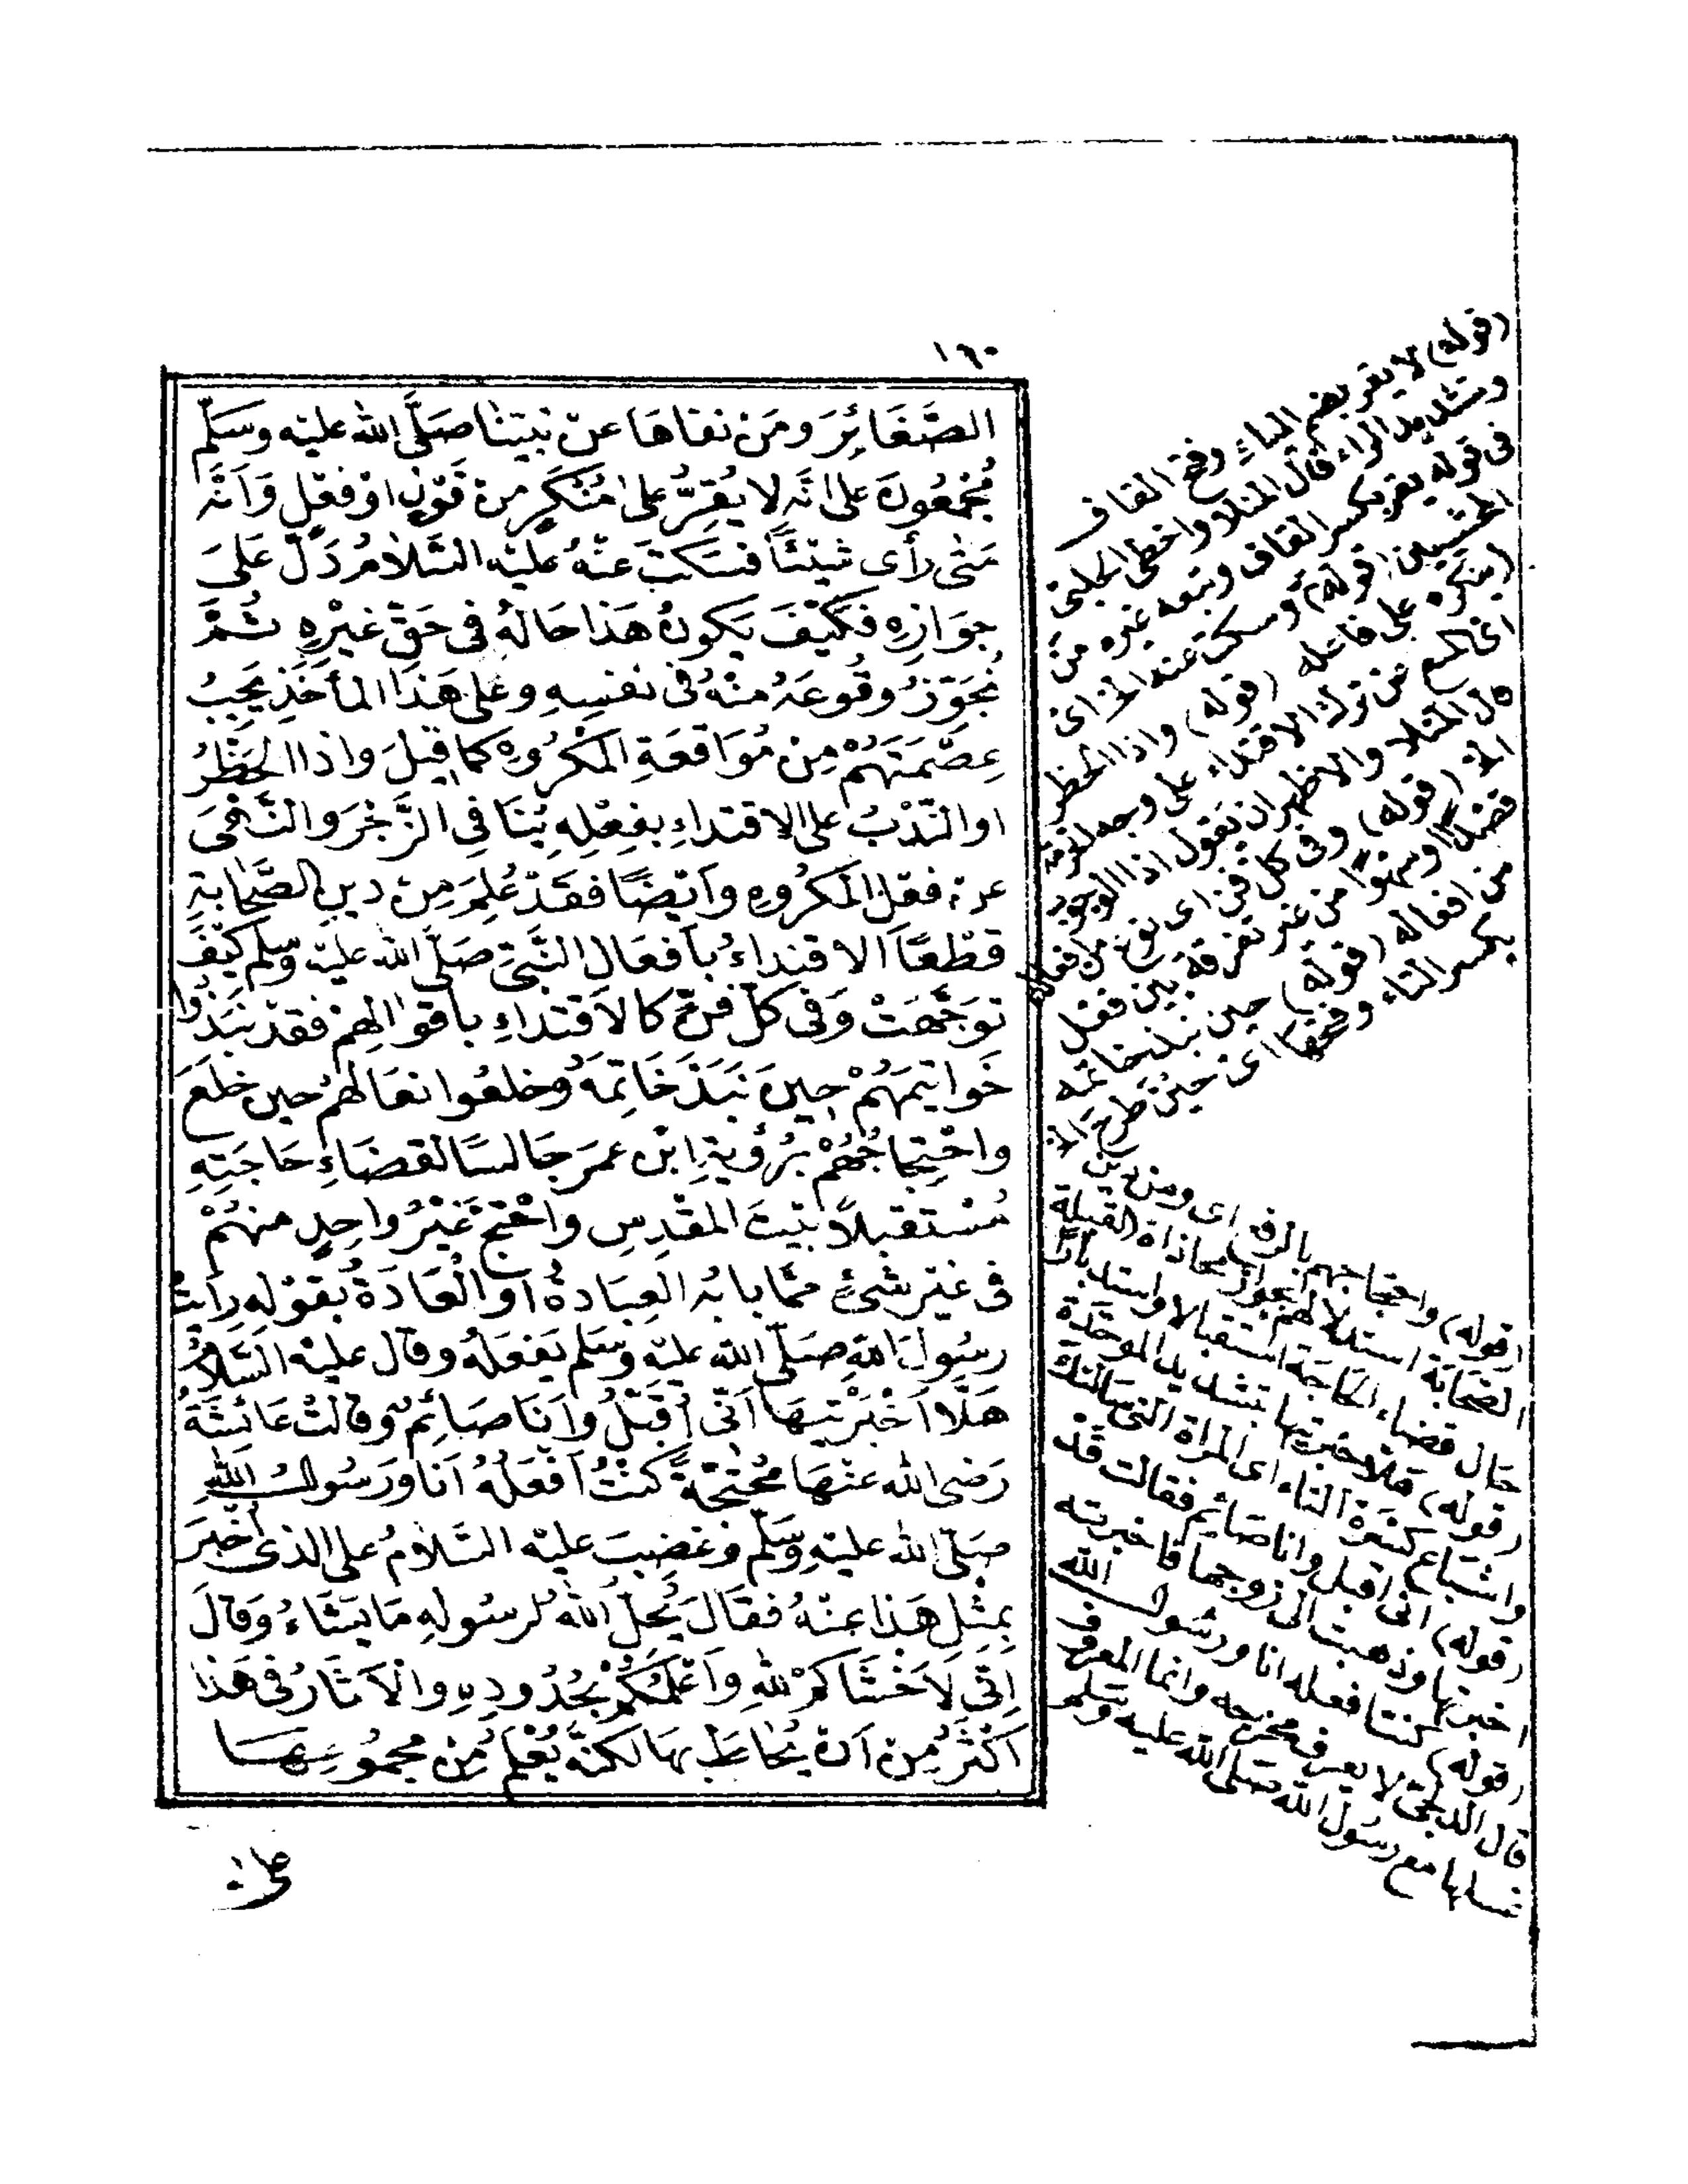 ١٦٠
الصَّغَائِرَ وَمَنْ نفاهَا عَنْ نبيّنَا صَلَّى الله عليْه وسَلّم
مُجْمِعُونَ على انَّه لا يُقَرُّ على مُنْكَرٍ منْ قَوْلٍ اوْ فعْلٍ وَاَنَّه
مَتٰى رأى شَيْئًا فسَكتَ عَنْهُ عليْه السَّلامُ دَلّ عَلىَ
جَوَازِهِ فكيْفَ يكونُ هَذا حَالهُ فى حَقّ غيْرِهِ ثمَّ
نُجَوِّزُ وقُوعَهُ منْهُ فى نفسِهِ وعلى هَذا المأخَذِ يَجِبُ
عِصْمَتهُمْ مِنْ مُوَاقعَةِ المكْرُوهِ كما قيلَ واذا الحَظْرُ
او النَّدْبُ على الاقتداءِ بفِعْلِهِ يُنَافى الزَّجْرَ والنَّهْىَ
عنْ فعْلِ المَكرُوهِ وَاَيْضًا فقَدْ عُلِمَ مِنْ دينِ الصَّحَابةِ
قطْعًا الاقتداءُ بأفعَالِ النَّبىّ صَلَّى الله عليْه وسلّم كيْفَ
توَجَّهَتْ وَفى كلّ فنّ كالاقتداءِ بأقوالهِمْ فقدْ نبَذُوا
خَواتيمَهُمْ حِينَ نَبَذَ خَاتِمَهُ وخلعُوا نعَالهُمْ حينَ خلعَ
واحْتِجَاجُهُمْ برُؤْيةِ ابْن عمَرَ جَالسًا لقضَاءِ حَاجَتِهِ
مُسْتقبلاً بَيْتَ المقْدِسِ واحْتجّ غَيْرُ واحِدٍ منهُمْ
فى غيْرِ شئٍ ممّا بابُه العِبَادَةُ أو الْعَادَةُ بقوْلهِ رَاَيْتُ
رسُولَ اللهِ صَلّى الله عليْه وسَلم يَفعَلهُ وقال عليْه السَّلامُ
هَلَّا اَخْبَرْتِيهَا اَنّى أُقَبّلُ واَنَا صَائِمٌ وقالتْ عَائشَةُ
رَضى الله عنْهَا مُحْتَجَّةً كنْتُ اَفْعَلُهُ اَنَا ورَسُولُ اللهِ
صَلّى الله عليْهِ وسَلّم وغضِبَ عليْه السَّلامُ على الذى اَخْبَرَ
بمثْلِ هَذا عنْهُ فقَالَ يُحِلّ اللهُ لرسُولِهِ مَا يشَاءُ وَقالَ
اِنّى لاَخْشَاكمْ للهِ وَاَعْلمُكمْ بحُدُودِهِ والآثَارُ فى هَذا
اَكْثَرُ مِنْ اَنْ يُحَاطَ بهَا لكنَّهُ يُعْلمُ مِنْ مجمُوعِهَا
(قوله) لا يقر بضم الياء وفتح القاف
وتشديد الراء قال المنلا واخطئ الحلبى
فى قوله يقر بكسر القاف وتبعه غيره من
المحشيين (قوله) وسكت عنه الخ اى
(ينكره على فاعله (قوله) واذا الحظر
قال المنلا والاظهر ان يقول اذا الوجوب
الخ (قوله) وفى كل فن اى نوع من افعاله
من غير تفرقة بين فعل
من افعاله (قوله) حين نبذ خاتمه
بكسر التاء وفتحها اى حين طرح الخ
(قوله) واحتجاجهم بالرفع اى ومن دين
الصّحَابة استدلالهم لجواز محاذاة القبلة
حال قضاء الحاجة استقبالا واستدبارا
(قوله) هلا خبرتيها بتشديد الموحّدة
واشباع كسرة التاء اى المراة التى سَالتك
(قوله) انى اقبل وانا صَائم فقالت قد
اخبرتها وذهبت الى زوجها فاخبرته
(قوله) كنت افعله انا ورسُول الله
قال الدلجى لا يعرف مخرجه وانما المعروف
مع رسُول الله صَلى الله عليه وسَلم
على